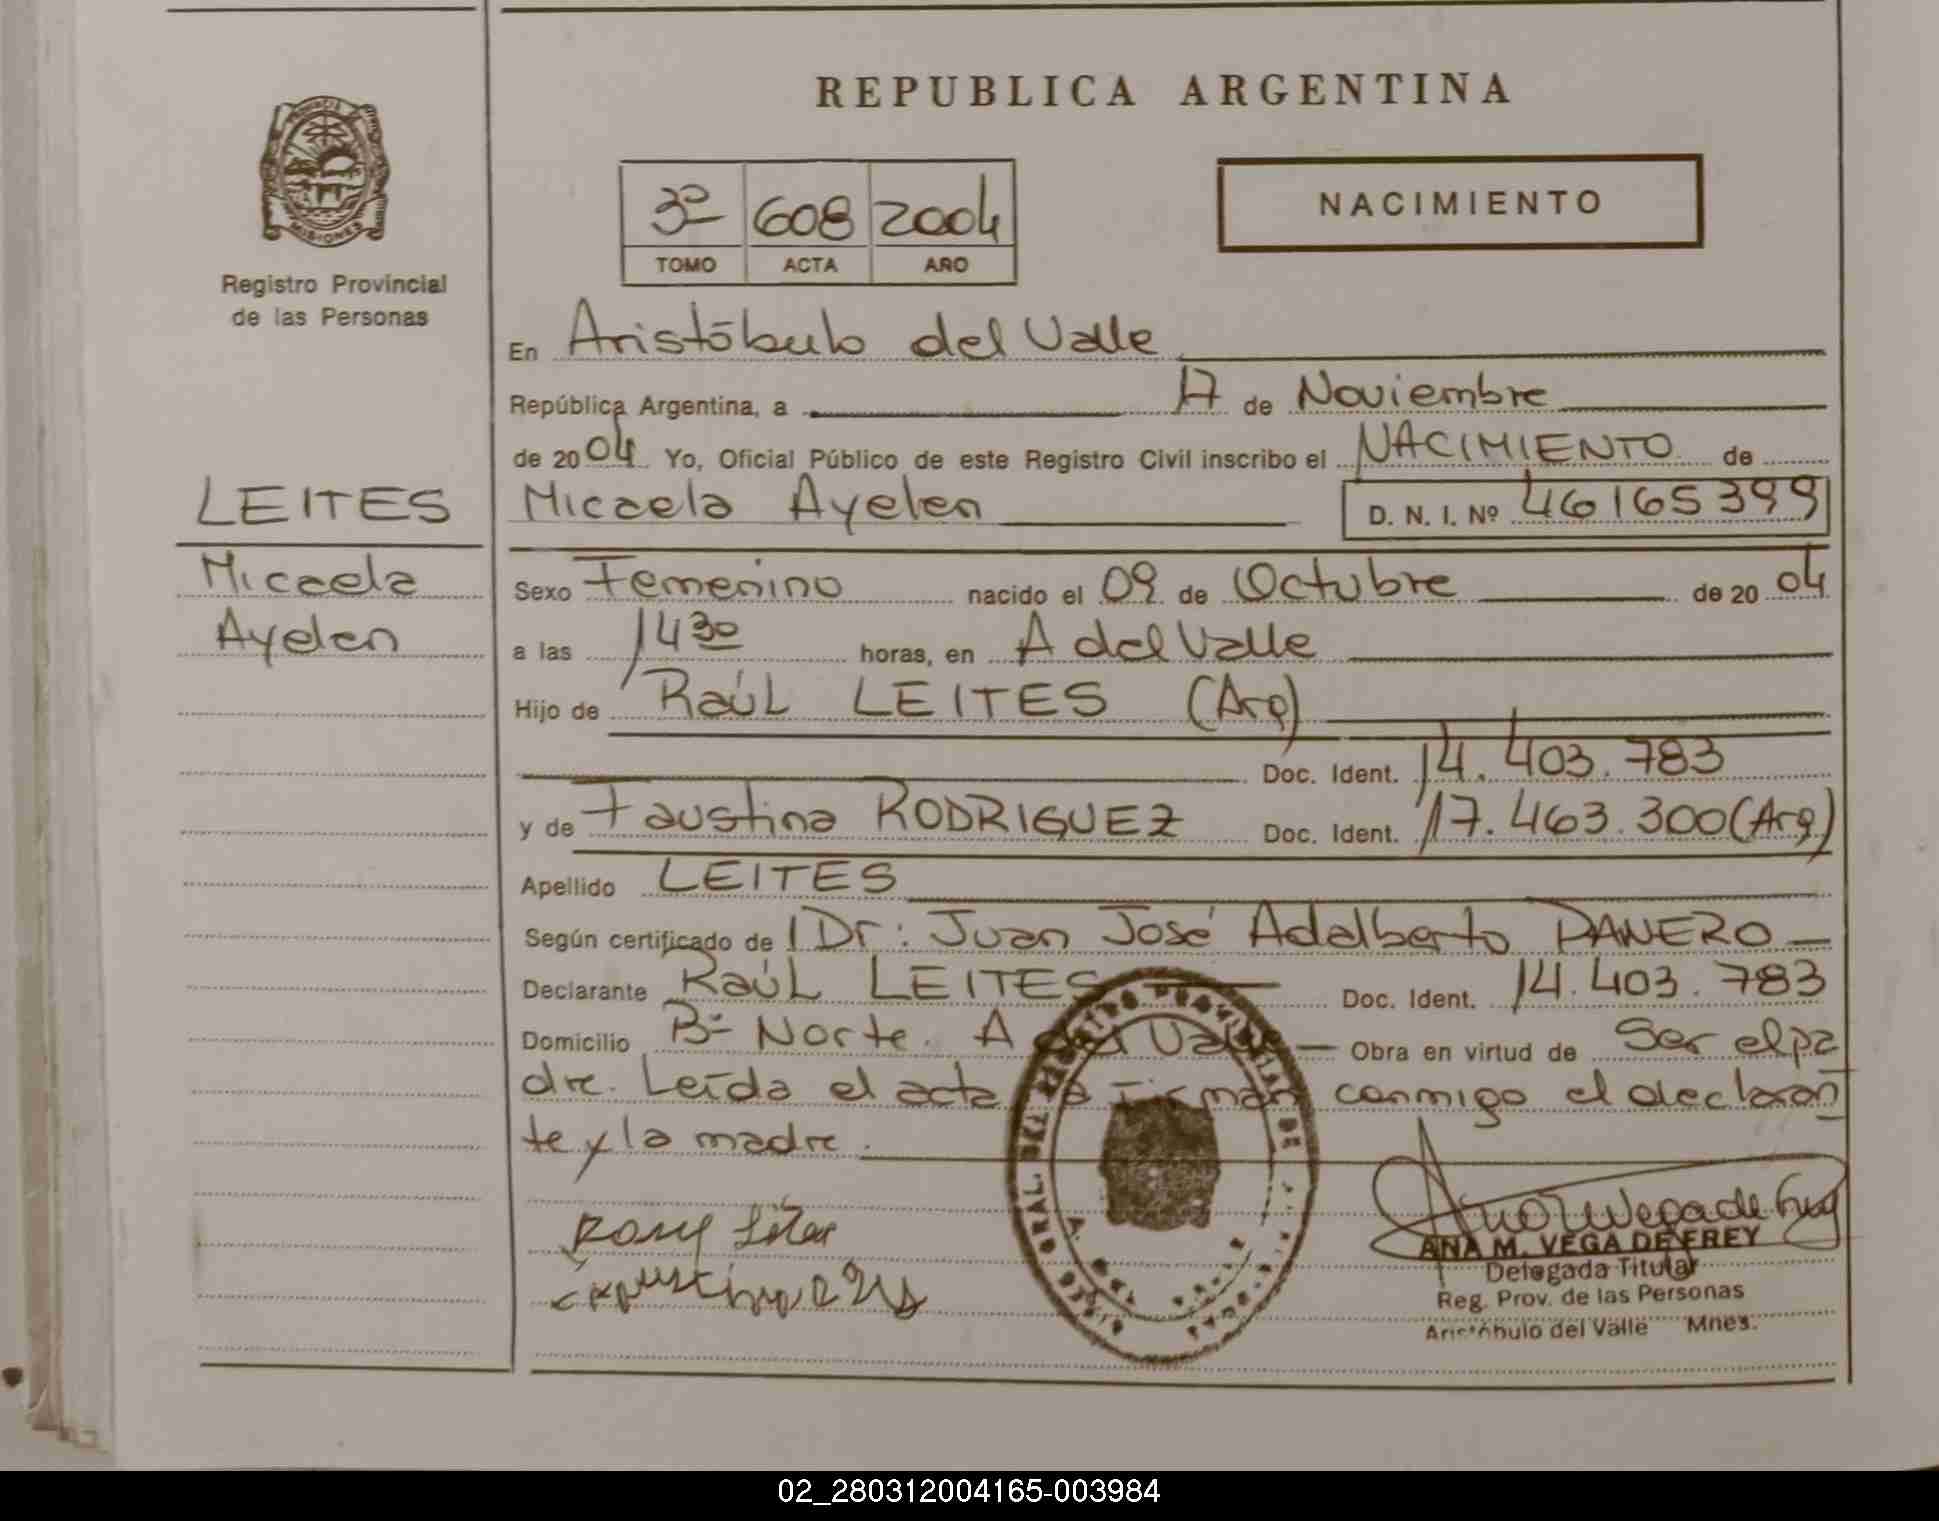 REPUBLICA ARGENTINA
NACIMIENTO
3º 608 2004
TOMO ACTA AÑO
PROVINCIA
MISIONES
Registro Provincial
de las Personas
LEITES
Micaela
Ayelen
En Aristóbulo del Valle
República Argentina, a 17 de Noviembre
de 2004 Yo, Oficial Público de este Registro Civil inscribo el NACIMIENTO de
Micaela Ayelen D. N. I. Nº 46165399
Sexo Femenino nacido el 09 de Octubre de 2004
a las 14 30 horas, en A del Valle
Hijo de Raúl LEITES (Arg)
Doc. Ident. 14.403.783
y de Faustina RODRIGUEZ Doc. Ident. 17.463.300 (Arg)
Apellido LEITES
Según certificado de Dr: Juan José Adalberto DANERO
Declarante Raúl LEITES Doc. Ident. 14.403.783
Domicilio Bº Norte. A del Valle Obra en virtud de Ser el pa
dre. Leída el acta la firman conmigo el declaran
te y la madre.
ANA M. VEGA DE FREY
Delegada Titular
Reg. Prov. de las Personas
Aristóbulo del Valle Mnes.
02_280312004165-003984